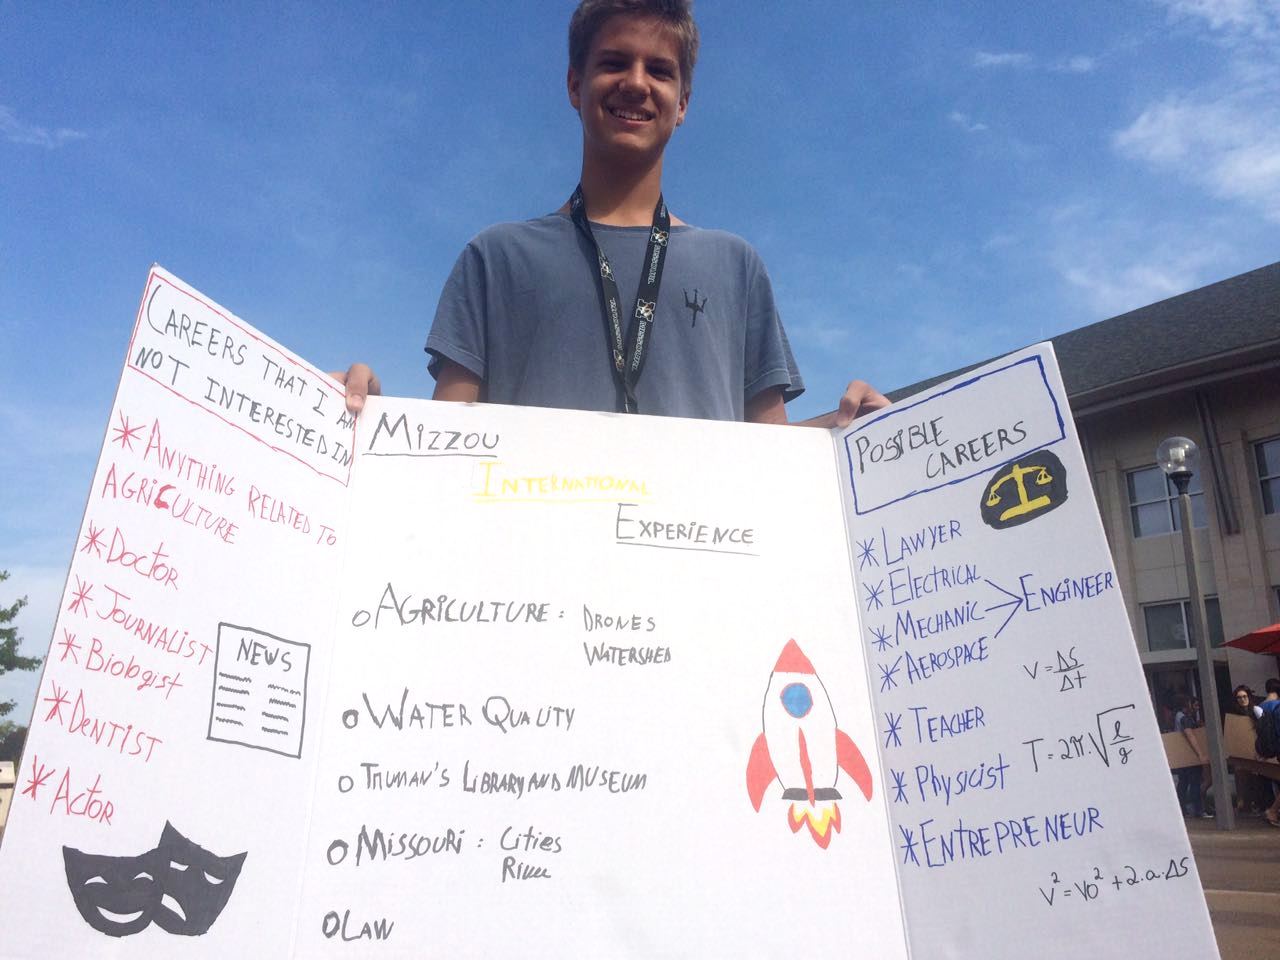 CAREERS THAT I AM
NOT INTERESTED IN
* ANYTHING RELATED TO
AGRICULTURE
* DOCTOR
* JOURNALIST
* BIOLOGIST
* DENTIST
* ACTOR
NEWS
MIZZOU
INTERNATIONAL
EXPERIENCE
O AGRICULTURE: DRONES
WATERSHED
O WATER QUALITY
O TRUMAN'S LIBRARY AND MUSEUM
O MISSOURI: CITIES
RIVER
O LAW
POSSIBLE
CAREERS
* LAWYER
* ELECTRICAL
* MECHANIC
* AEROSPACE
ENGINEER
* TEACHER
* PHYSICIST
* ENTREPRENEUR
V = ΔS/Δt
T = 2π.√(l/g)
V² = Vo² + 2.a.ΔS
MISSOURI